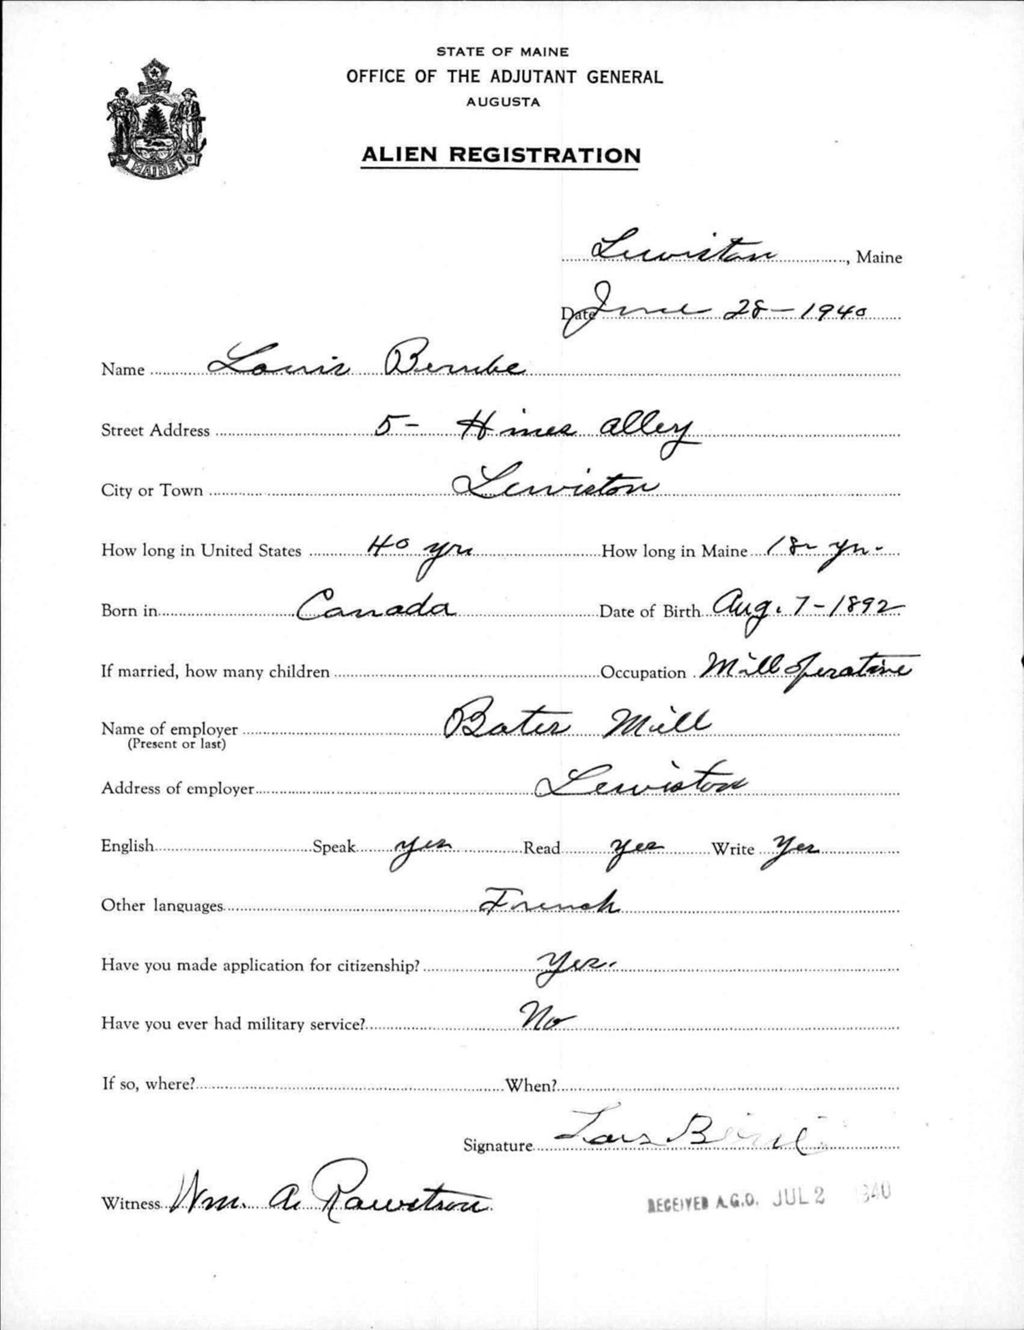 STATE OF MAINE
OFFICE OF THE ADJUTANT GENERAL
AUGUSTA
ALIEN REGISTRATION
MAINE
Lewiston, Maine
Date June 28-1940
Name Louis Berube
Street Address 5- Hines Alley
City or Town Lewiston
How long in United States 40 yrs How long in Maine 18 yr.
Born in Canada Date of Birth Aug. 7-1892
If married, how many children Occupation Mill operative
Name of employer Bates Mill
(Present or last)
Address of employer Lewiston
English Speak yes Read yes Write Yes
Other languages French
Have you made application for citizenship? Yes.
Have you ever had military service? No
If so, where? When?
Signature
Witness Wm. A.
RECEIVED A.G.O. JUL 2 1940